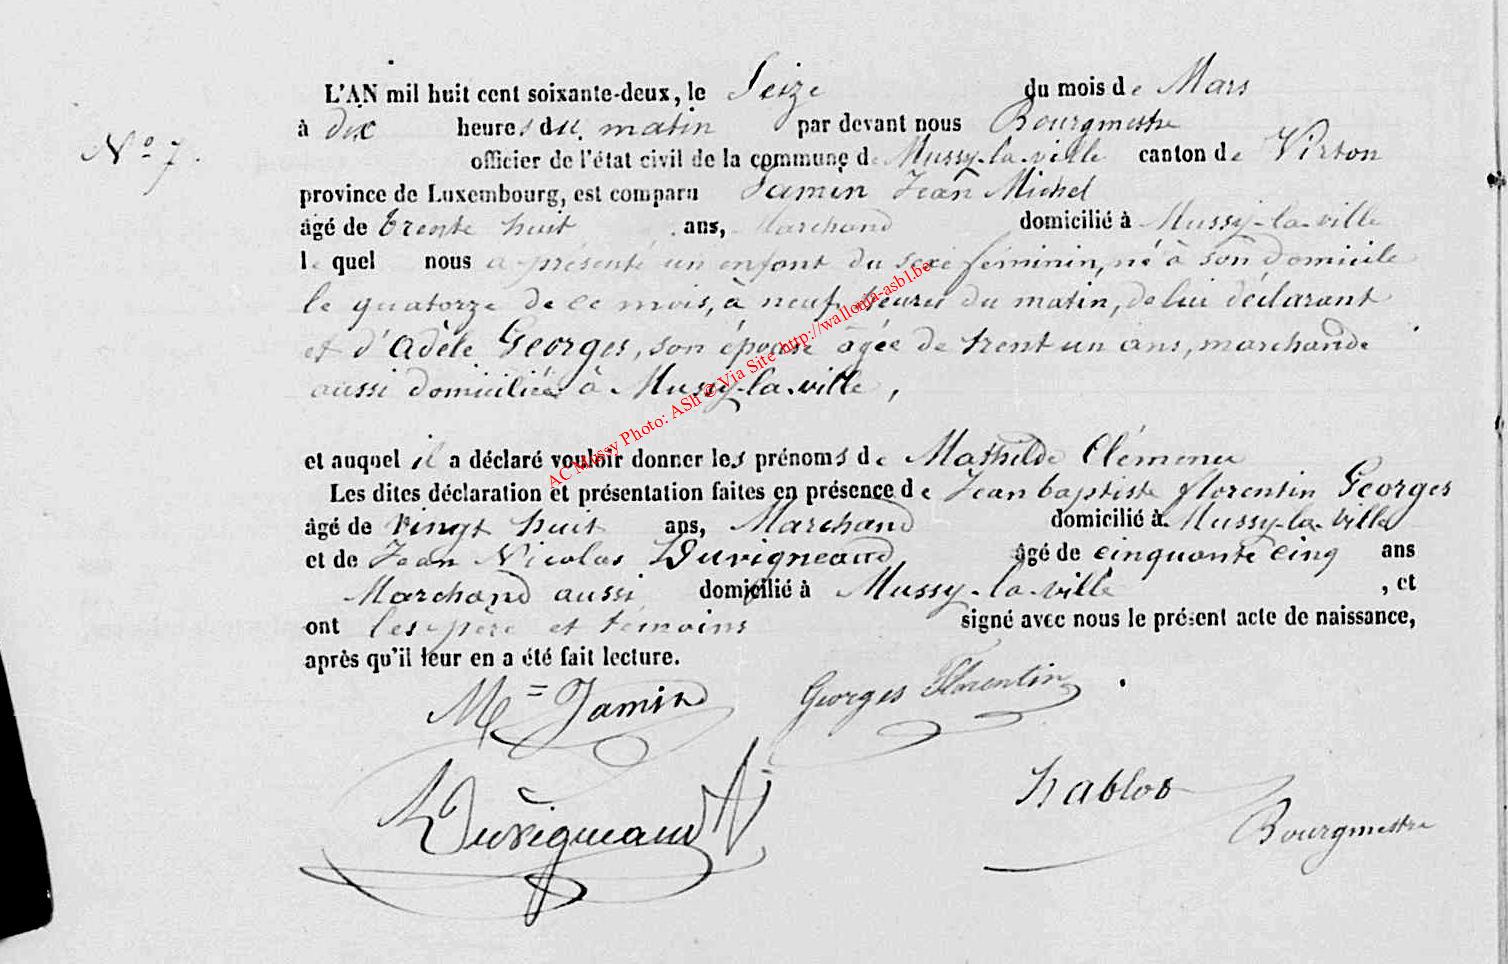 L'AN mil huit cent soixante-deux, le Seize du mois de Mars
à dix heures du matin par devant nous Bourgmestre
N° 7. officier de l'état civil de la commune de Mussy-la-ville canton de Virton
province de Luxembourg, est comparu Jamin Jean Michel
âgé de trente huit ans, Marchand domicilié à Mussy-la-ville
le quel nous a présenté un enfant du sexe féminin, né à son domicile
le quatorze de ce mois, à neuf heures du matin, de lui déclarant
et d'Adèle Georges, son épouse âgée de trent un ans, marchande
aussi domiciliée à Mussy-la-ville,
et auquel il a déclaré vouloir donner les prénoms de Mathilde Clémence
Les dites déclaration et présentation faites en présence de Jean baptiste florentin Georges
âgé de vingt huit ans, Marchand domicilié à Mussy-la-ville
et de Jean Nicolas Duvigneaud âgé de cinquante cinq ans
Marchand aussi domicilié à Mussy-la-ville, et
ont les père et témoins signé avec nous le présent acte de naissance,
après qu'il leur en a été fait lecture.
Jamin Georges Florentin
Duvigneaud
hablot
Bourgmestre
AC Mussy Photo: ASh © Via Site http://wallonia-asbl.be